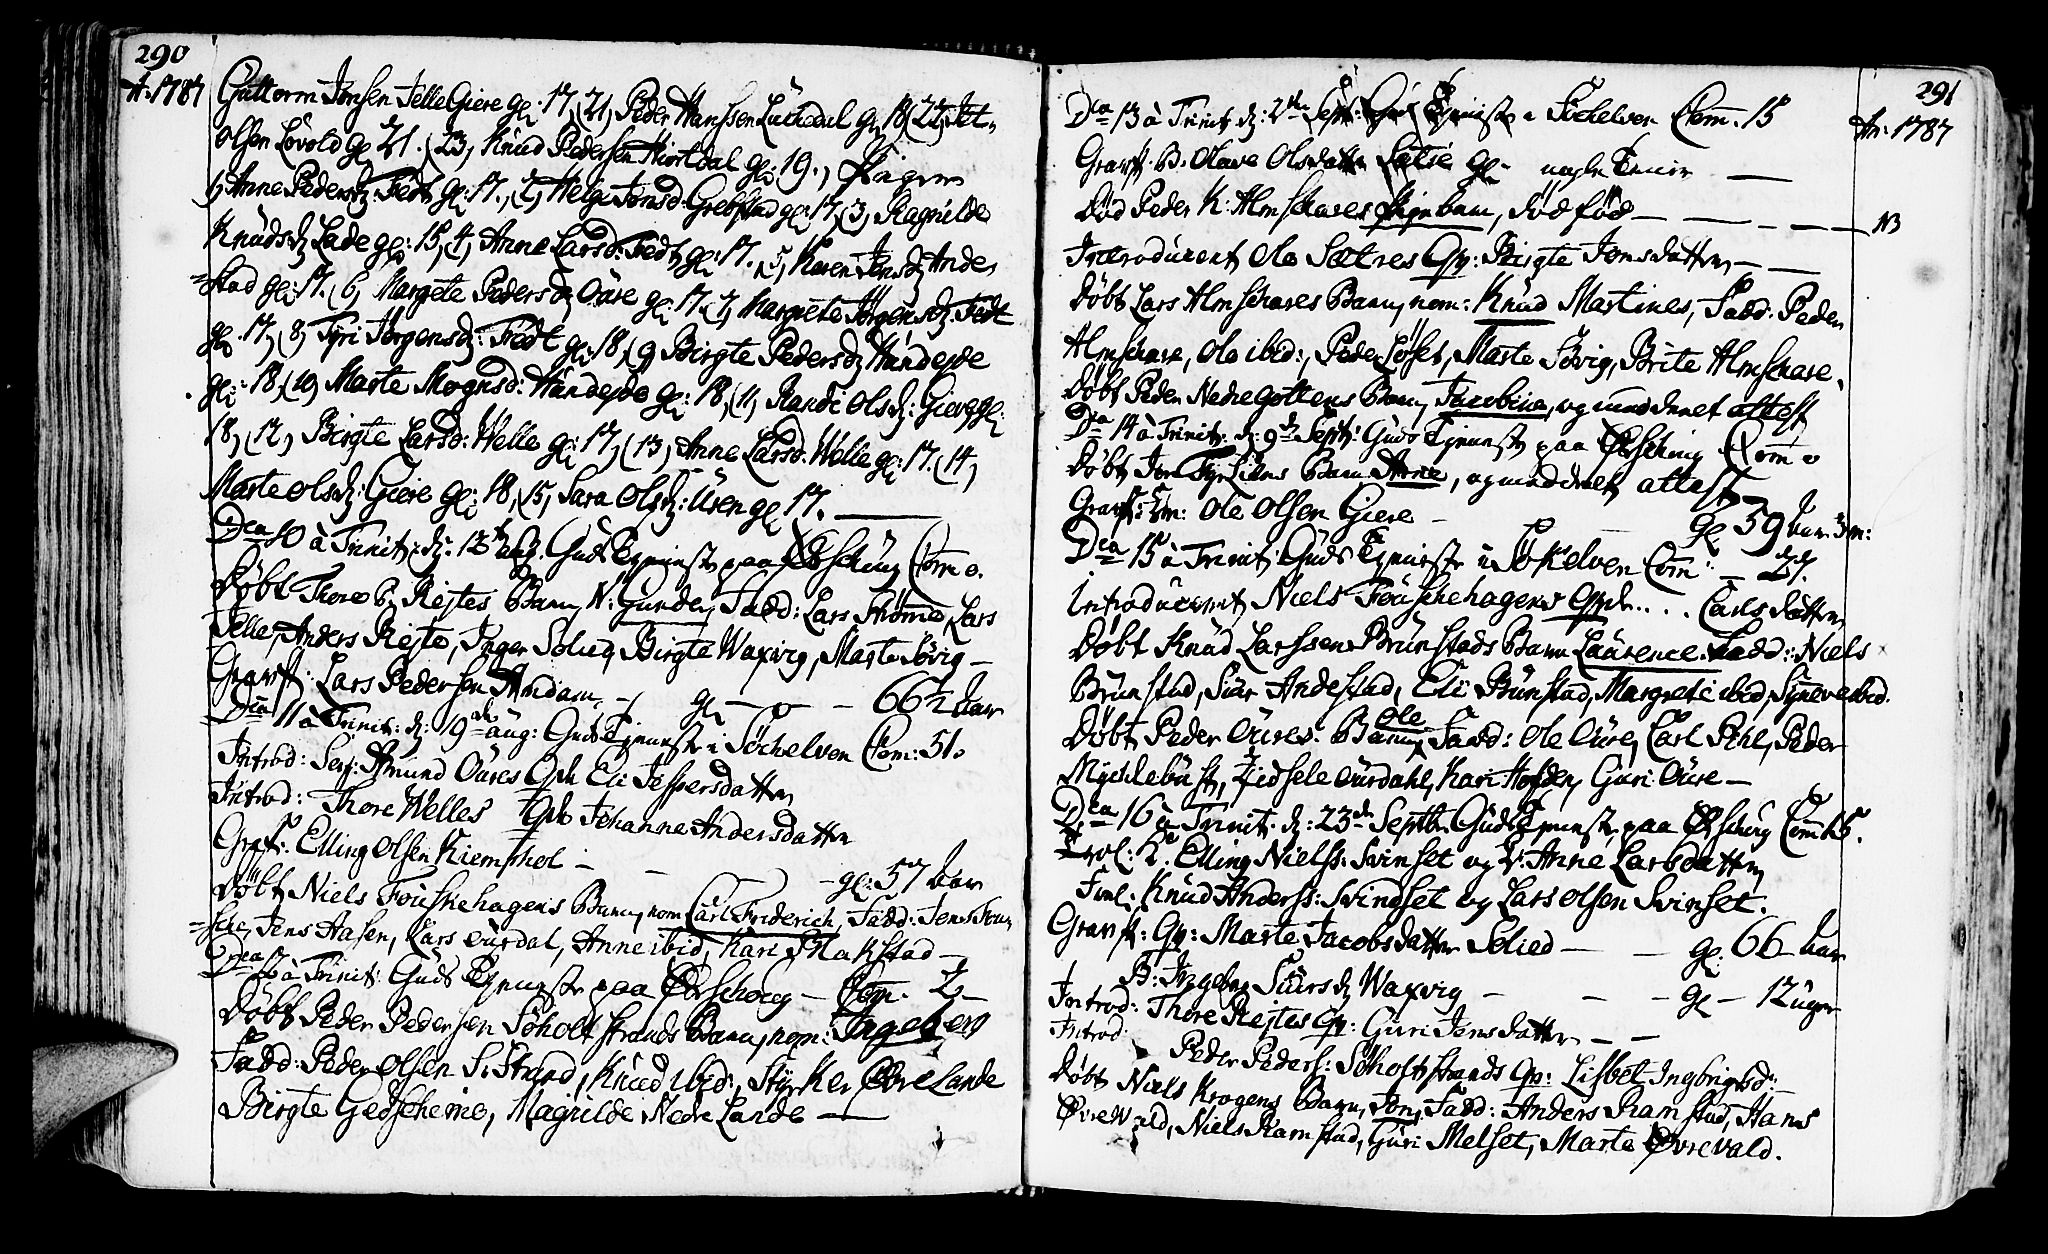 290
A: 1787
Guttorm Jonsen Jelle Giere gl: 17, (21, Peder Hanssen Luthdal gl: 18 (22,
Olsen Lovold gl 21. (23, Knud Pedersen Hiortdal gl: 19., Pigerne
1, Anne Pedersd: Tredt gl: 17., (2, Helge Jonsd: Grebstad gl: 17, (3, Ragnilde
Knudsd Lade gl: 15, (4, Anne Larsd: Tredt gl: 17. (5, Karen Jensd Ande
=stad gl: 17. (6, Margete Pedersd Oure gl: 17. (7, Margrete Jørgensd: Tredt
gl: 17, (8, Tyri Jørgensd: Tredt gl: 18, (9 Birgte Pedersd Hundejde
gl: 18, (10, Marte Mognsd: Hundejde gl: 18, (11, Randi Olsd: Giere gl:
18, (12, Birgte Larsd: Welle gl: 17, (13, Anne Larsd: Welle gl: 17. (14,
Marte Olsd: Giere gl: 18, (15, Sara Olsd: Uren gl: 17.
Dca 10 à Trinit: d: 12te Aug. Guds Tjeneste paa Ørschoug Com 0.
Døbt Thore Rejtes Barn, N: Gunder, Fadd: Lars Strømme, Lars
Jelle, Anders Rejte, Inger Solied, Birgte Waxvig, Marte Søvig –
Gravf: Lars Pedersen Amdam – gl – 66½ Aar
Dca 11 à Trinit: d: 19de aug: Guds Tjeneste i Søchelven Com: 51.
Introd: Serj: Amund Oures Qv Eli Jespersdatter
Introd: Thore Welles Qv Johanne Andersdatter
Gravf: Elling Olsen Kiemshol – – – gl: 57 Aar
Døbt Niels Fouskehagens Barn, nom Carl Friderich, Fadd: Jens Fou
=ske, Jens Aasen, Lars Ourdal, Anne ibid, Kari Flakstad –
Dca 12 à Trinit: Guds Tjeneste paa Ørschoug – Com. 2 –
Døbt Peder Pedersen Søholtstrands Barn, nom: Ingeborg
Fadd: Peder Olsen S. Strand, Knud ibid:, Styrker Øvre Lande
Birgte Gedscheine, Magnilde Nedre Lande —
291
An: 1787
Dca 13 à Trinit d: 2den Sept: Guds Tjeneste i Søchelven Com. 15
Gravf: B: Olave Olsdatter Sætre gl: nogle timer —
Død Peder K: Almschares Pigebarn, død fød – – – – NB
Introduceret Ole Sætres Qv: Birgte Jonsdatter – –
Døbt Lars Almschares Barn, nom: Knud Martines, Fadd. Peder
Almschare, Ole ibid:, Peder Løset, Marte Søvig, Brite Almschare.
Døbt Peder Nedregottens Barn, Jacobine, og meddeelet attest
Dca 14 à Trinit: d: 9de Septr: Guds Tjeneste paa Ørschoug Com 0
Døbt Jon Tyrliens Barn Arne, og meddeelet attest –
Gravf: Ole Olsen Giere – – gl 59 Aar 3 m:
Dca 15 à Trinit: Guds Tjeneste i Søkelven Com: – 27.
Introduceret Niels Fouschehagens Qv. . . . Carlsdatter
Døbt Knud Larssen Brunstads Barn Laurence. Fadd: Niels
Brunstad, Siur Andestad, Eli Brunstad, Margrete ibid, Synneve ibid.
Døbt Peder Oures Barn, Ole Fadd: Ole Oure, Carl Pihl, Peder
Mycklebust, Zidsele Ourdahl, Kari Hofden, Guri Oure –
Dca 16 à Trinit: d: 23de Septbr Guds Tjeneste paa Ørschoug Com 15.
Trol: K: Elling Nielss: Svinset og P: Anne Larsdatter
Forl: Knud Anderss: Svindset og Lars Olsen Svinset.
Gravf: Qv: Marte Jacobsdatter Solied – – gl: 66 Aar
B: Ingebor Siursd Waxvig – – – gl – 12 uger
Introd: Thore Rejtes Qv: Guri Jensdatter – –
Introd: Peder Peders: Søholtstrands Qv: Lisbet Ingbrigtsd: –
Døbt Niels Krogens Barn, Jon, Fadd: Anders Ramstad, Hans
Øvrewald, Niels Ramstad, Guri Melset, Marte Øvrevald.